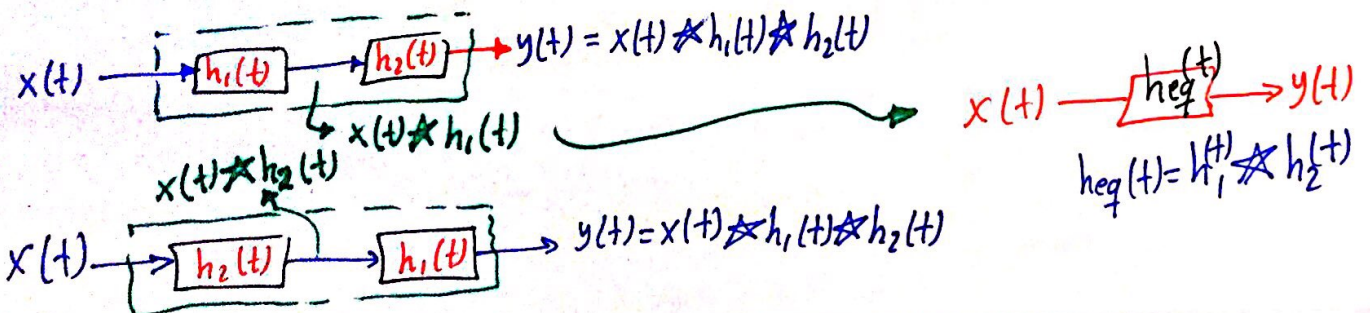 x(t) h₁(t) h₂(t) y(t) = x(t) ☆ h₁(t) ☆ h₂(t)
x(t) ☆ h₁(t)
x(t) heq(t) y(t)
heq(t) = h₁(t) ☆ h₂(t)
x(t) ☆ h₂(t)
x(t) h₂(t) h₁(t) y(t) = x(t) ☆ h₁(t) ☆ h₂(t)